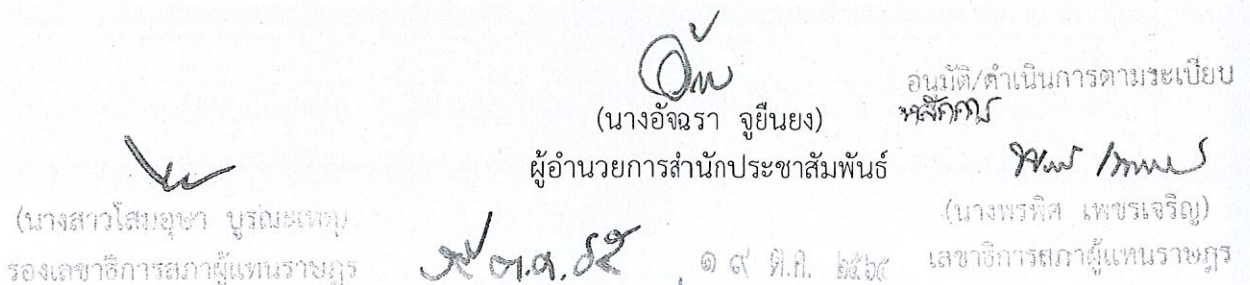 (นางอัจฉรา จูยืนยง)
ผู้อำนวยการสำนักประชาสัมพันธ์
อนุมัติ/ดำเนินการตามระเบียบ
(นางสาวโสมอุษา บูรณะเหตุ)
รองเลขาธิการสภาผู้แทนราษฎร
๑๙ ต.ค. ๒๕๖๕
(นางพรพิศ เพชรเจริญ)
เลขาธิการสภาผู้แทนราษฎร